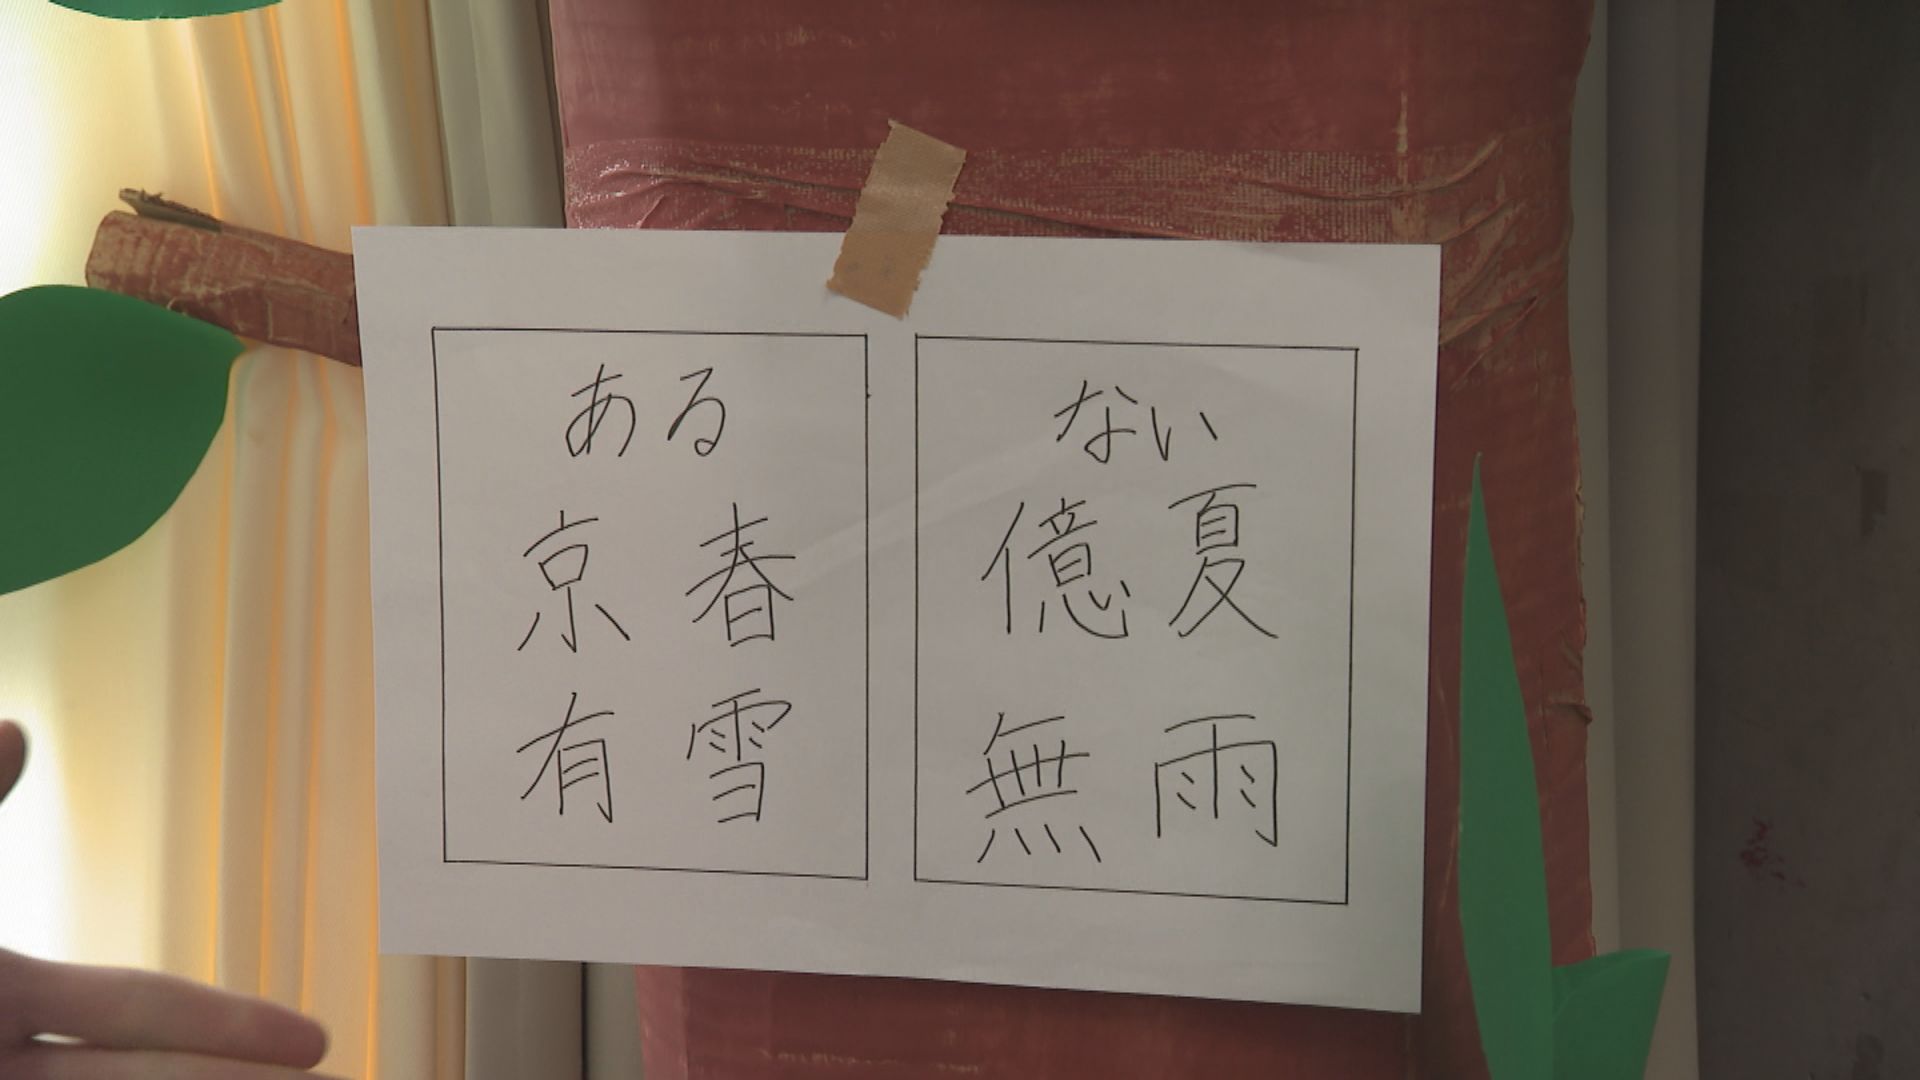 ある
京 春
有 雪
ない
億 夏
無 雨